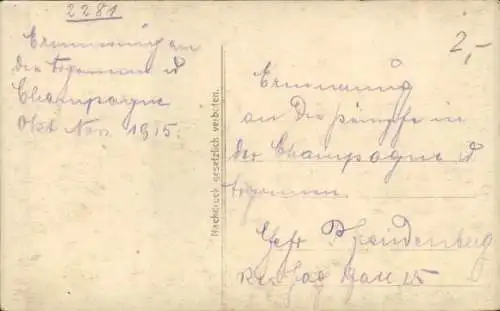 2281
2,-
Erinnerung an
den Argonnen u
Champagne
Okt Nov. 1915.
Nachdruck gesetzlich verboten.
Erinnerung
an die Kämpfe in
der Champagne u
Argonnen.
Gefr
Res Jag Batl 15